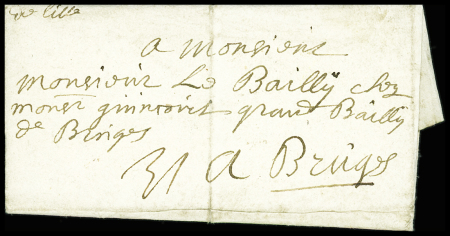 de Lille
a Monsieur
Monsieur Le Baillÿ chez
monsr guincourt grand Baillÿ
de Bruges
A Bruges